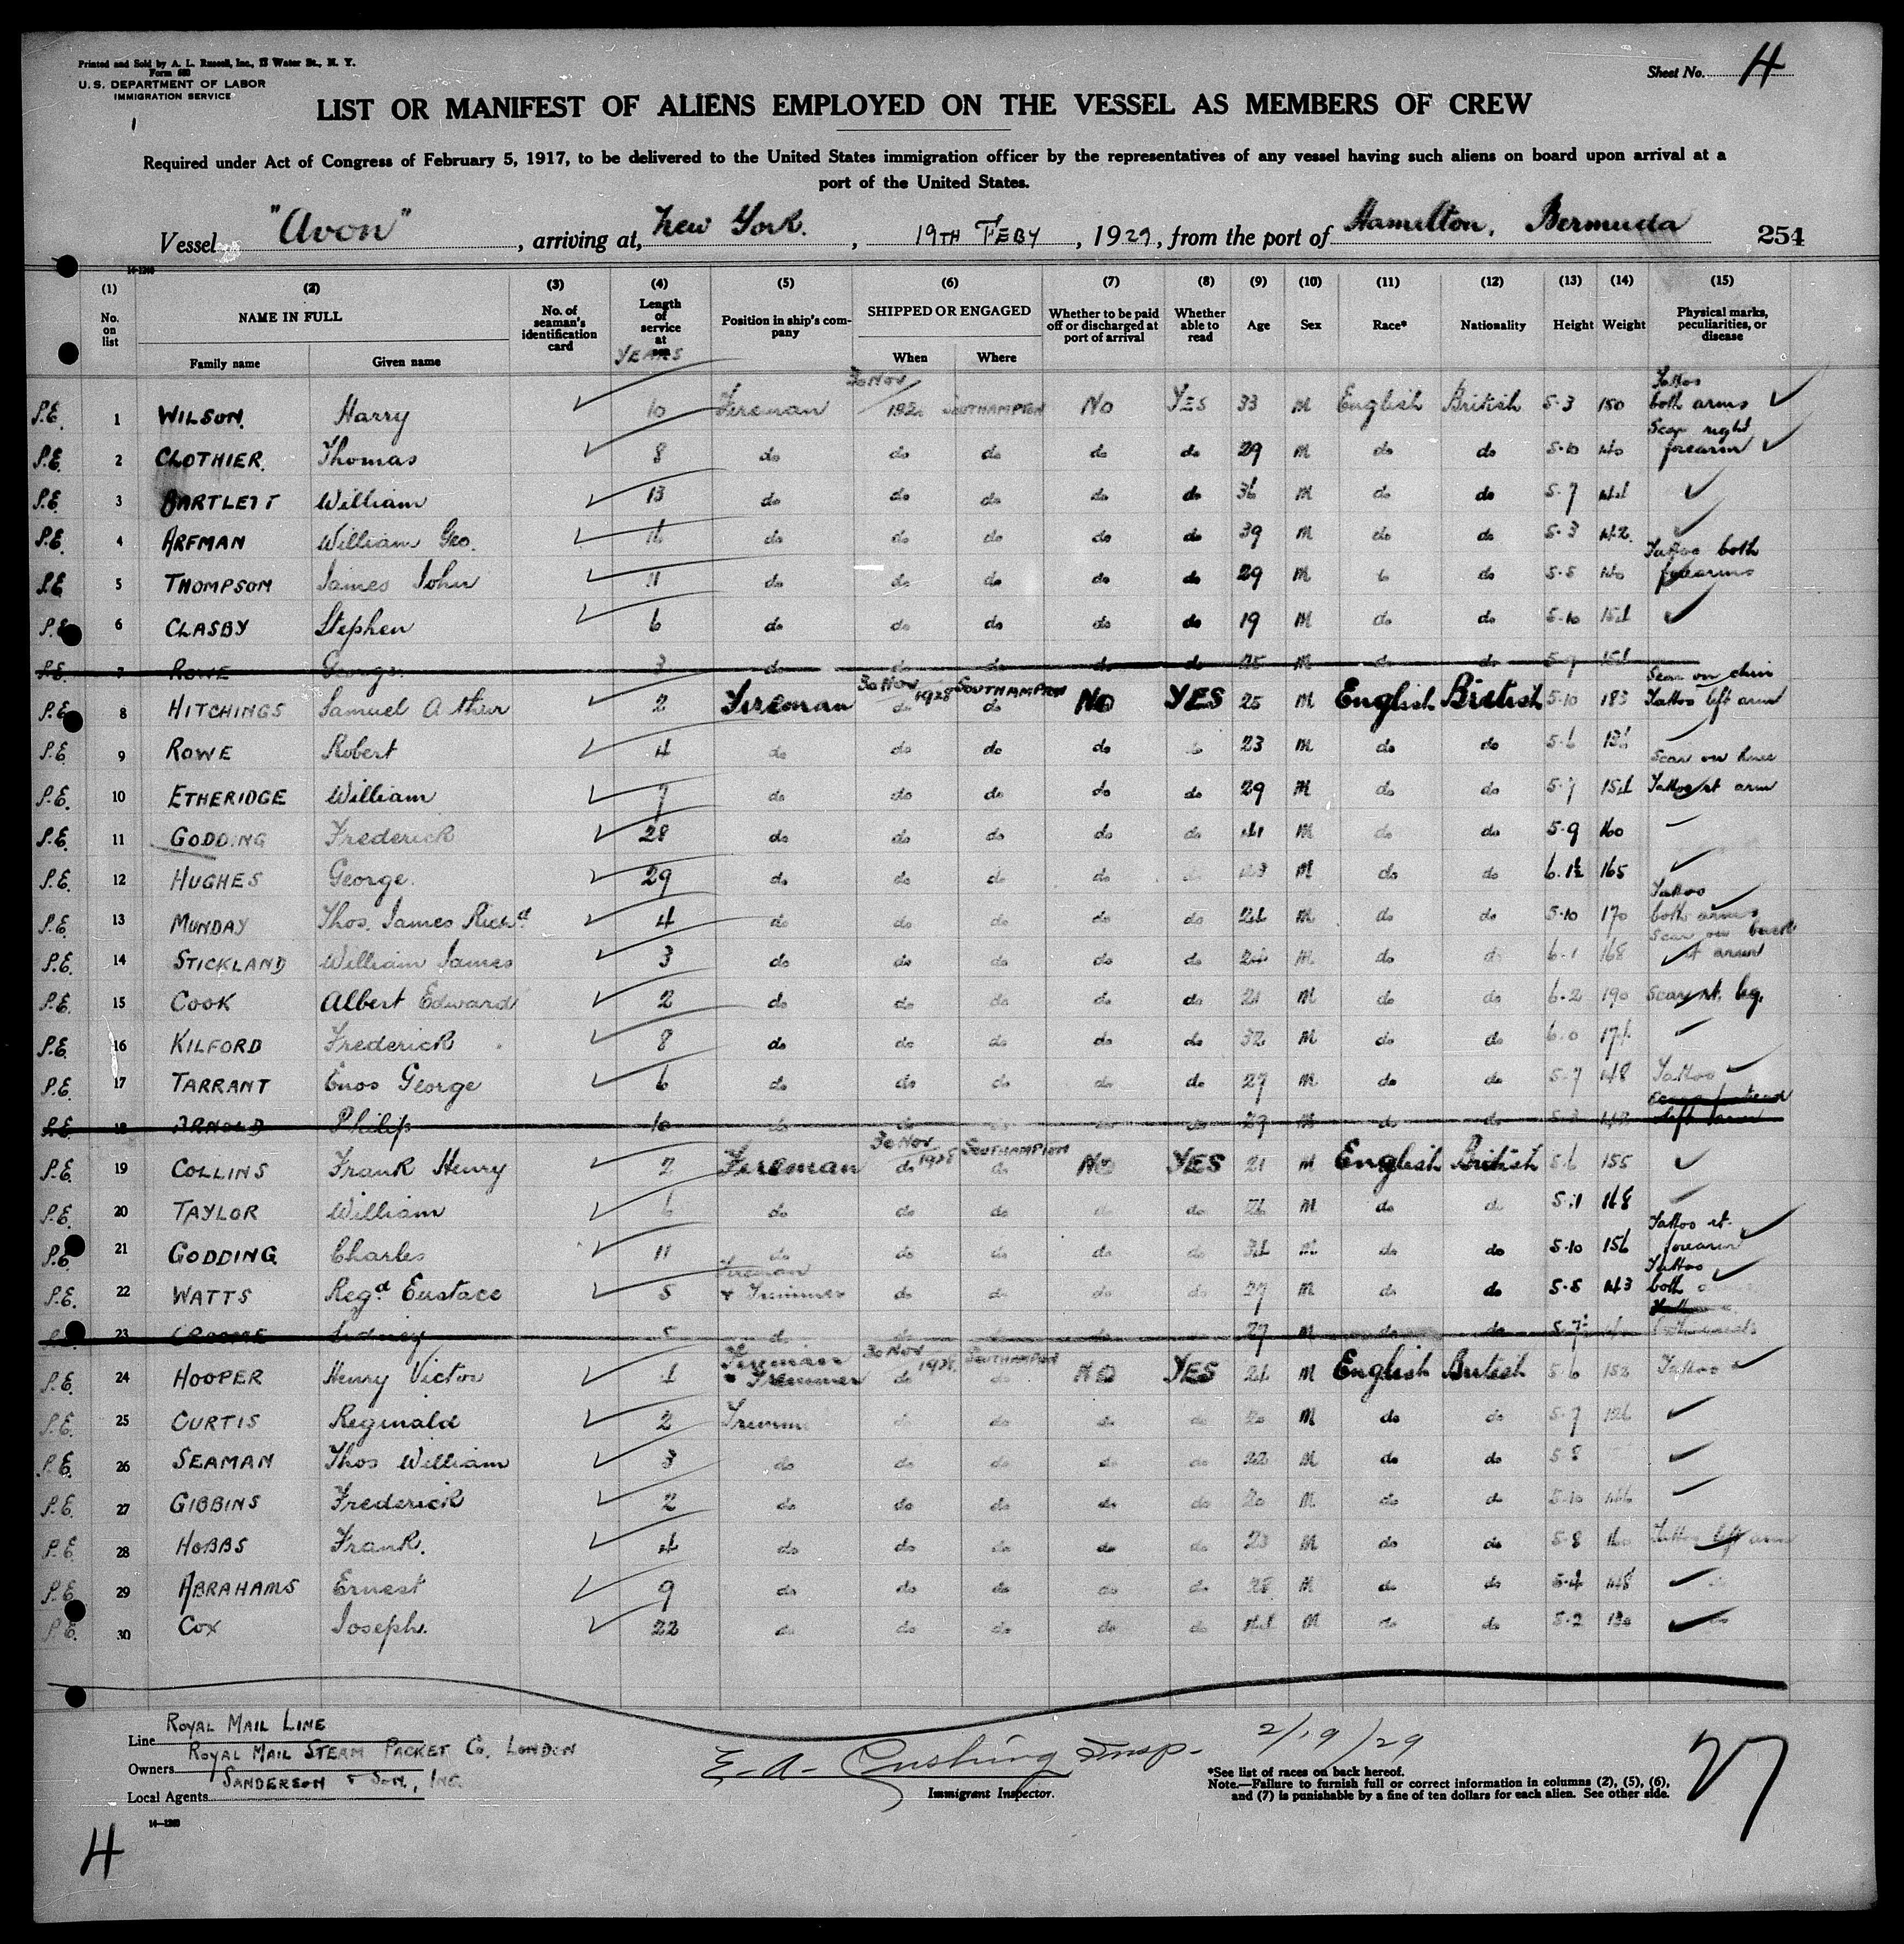 Printed and Sold by A. L. Russell, Inc., 13 Water St., N. Y.
Form 680
U. S. DEPARTMENT OF LABOR
IMMIGRATION SERVICE
Sheet No. 4
LIST OR MANIFEST OF ALIENS EMPLOYED ON THE VESSEL AS MEMBERS OF CREW
Required under Act of Congress of February 5, 1917, to be delivered to the United States immigration officer by the representatives of any vessel having such aliens on board upon arrival at a
port of the United States.
Vessel "Avon", arriving at, New York., 19TH FEBY, 1929, from the port of Hamilton, Bermuda 254
(1) No. on list (2) NAME IN FULL Family name Given name (3) No. of seaman's identification card (4) Length of service at YEARS (5) Position in ship's company (6) SHIPPED OR ENGAGED When Where (7) Whether to be paid off or discharged at port of arrival (8) Whether able to read (9) Age (10) Sex (11) Race* (12) Nationality (13) Height (14) Weight (15) Physical marks, peculiarities, or disease
P.E. 1 WILSON. Harry 10 Fireman 30 Nov SOUTHAMPTON No YES 33 M English British 5-3 150 Tattoo both arms
P.E. 2 CLOTHIER. Thomas 8 do do do do do 29 M do do 5-10 140 Scar right forearm
P.E. 3 BARTLETT William 13 do do do do do 36 M do do 5-7 144
P.E. 4 ARFMAN William Geo. 16 do do do do do 39 M do do 5-3 142
P.E. 5 THOMPSON James John 11 do do do do do 29 M do do 5-5 140 Tattoo both forearms
P.E. 6 CLASBY Stephen 6 do do do do do 19 M do do 5-10 154
P.E. 7 ROWE George 3 do do do do do 25 M do do 5-9 154
P.E. 8 HITCHINGS Samuel Arthur 2 Fireman 30 Nov 1928 SOUTHAMPTON No YES 25 M English British 5-10 183 Scar on chin Tattoo left arm
P.E. 9 ROWE Robert 4 do do do do do 23 M do do 5-6 136
P.E. 10 ETHERIDGE William 7 do do do do do 29 M do do 5-7 154 Scar on knee Tattoo rt arm
P.E. 11 GODDING Frederick 28 do do do do do 41 M do do 5-9 160
P.E. 12 HUGHES George. 29 do do do do M do do 6-1½ 165
P.E. 13 MUNDAY Thos. James Richd 4 do do do do do 24 M do do 5-10 170 Tattoo both arms
P.E. 14 STICKLAND William James 3 do do do do do 24 M do do 6-1 168 Scar on back rt arm
P.E. 15 COOK Albert Edward 2 do do do do do 21 M do do 6-2 190 Scar rt. leg.
P.E. 16 KILFORD Frederick 8 do do do do do 32 M do do 6-0 174
P.E. 17 TARRANT Enos George 6 do do do do do 27 M do do 5-7 148 Tattoo
P.E. 18 ARNOLD Philip 10 do do do do do 29 M do do 5-3 left arm
P.E. 19 COLLINS Frank Henry 2 Fireman 30 Nov 1928 SOUTHAMPTON No YES 21 M English British 5-6 155
P.E. 20 TAYLOR William 6 do do do do do 26 M do do 5-11 168
P.E. 21 GODDING Charles 11 do do do do do 34 M do do 5-10 156 Tattoo rt. forearm
P.E. 22 WATTS Regd Eustace 5 Fireman & Trimmer do do do do 27 M do do 5-5 143 Tattoo both
23 CROOME Sidney 5 do do do do do 27 M do do 5-7½
P.E. 24 HOOPER Henry Victor 1 Fireman & Trimmer 30 Nov 1928 SOUTHAMPTON No YES 24 M English British 5-6 152 Tattoo
P.E. 25 CURTIS Reginald 2 Trimmer do do do do 20 M do do 5-7 126
P.E. 26 SEAMAN Thos William 3 do do do do do 22 M do do 5-8
P.E. 27 GIBBINS Frederick 2 do do do do do 20 M do do 5-10 146
P.E. 28 HOBBS Frank. 4 do do do do do 23 M do do 5-8 160 Tattoo left arm
P.E. 29 ABRAHAMS Ernest 9 do do do do do 28 M do do 5-4 148
P.E. 30 COX Joseph. 22 do do do do do 44 M do do 5-2 130
Line ROYAL MAIL LINE
Owners ROYAL MAIL STEAM PACKET Co. LONDON
Local Agents SANDERSON & SON., INC.
E. A. Cushing Insp. 2/19/29
Immigrant Inspector.
*See list of races on back hereof.
Note.—Failure to furnish full or correct information in columns (2), (5), (6),
and (7) is punishable by a fine of ten dollars for each alien. See other side.
27
14—1240
4